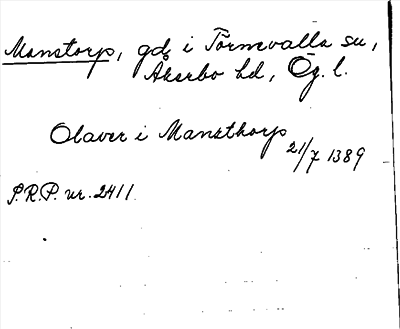 Manstorp, gd, i Törnevalla sn,
Åkerbo hd, Ög. l.
Olaver i Mansthorp
21/7 1389
S.R.P. nr. 2411